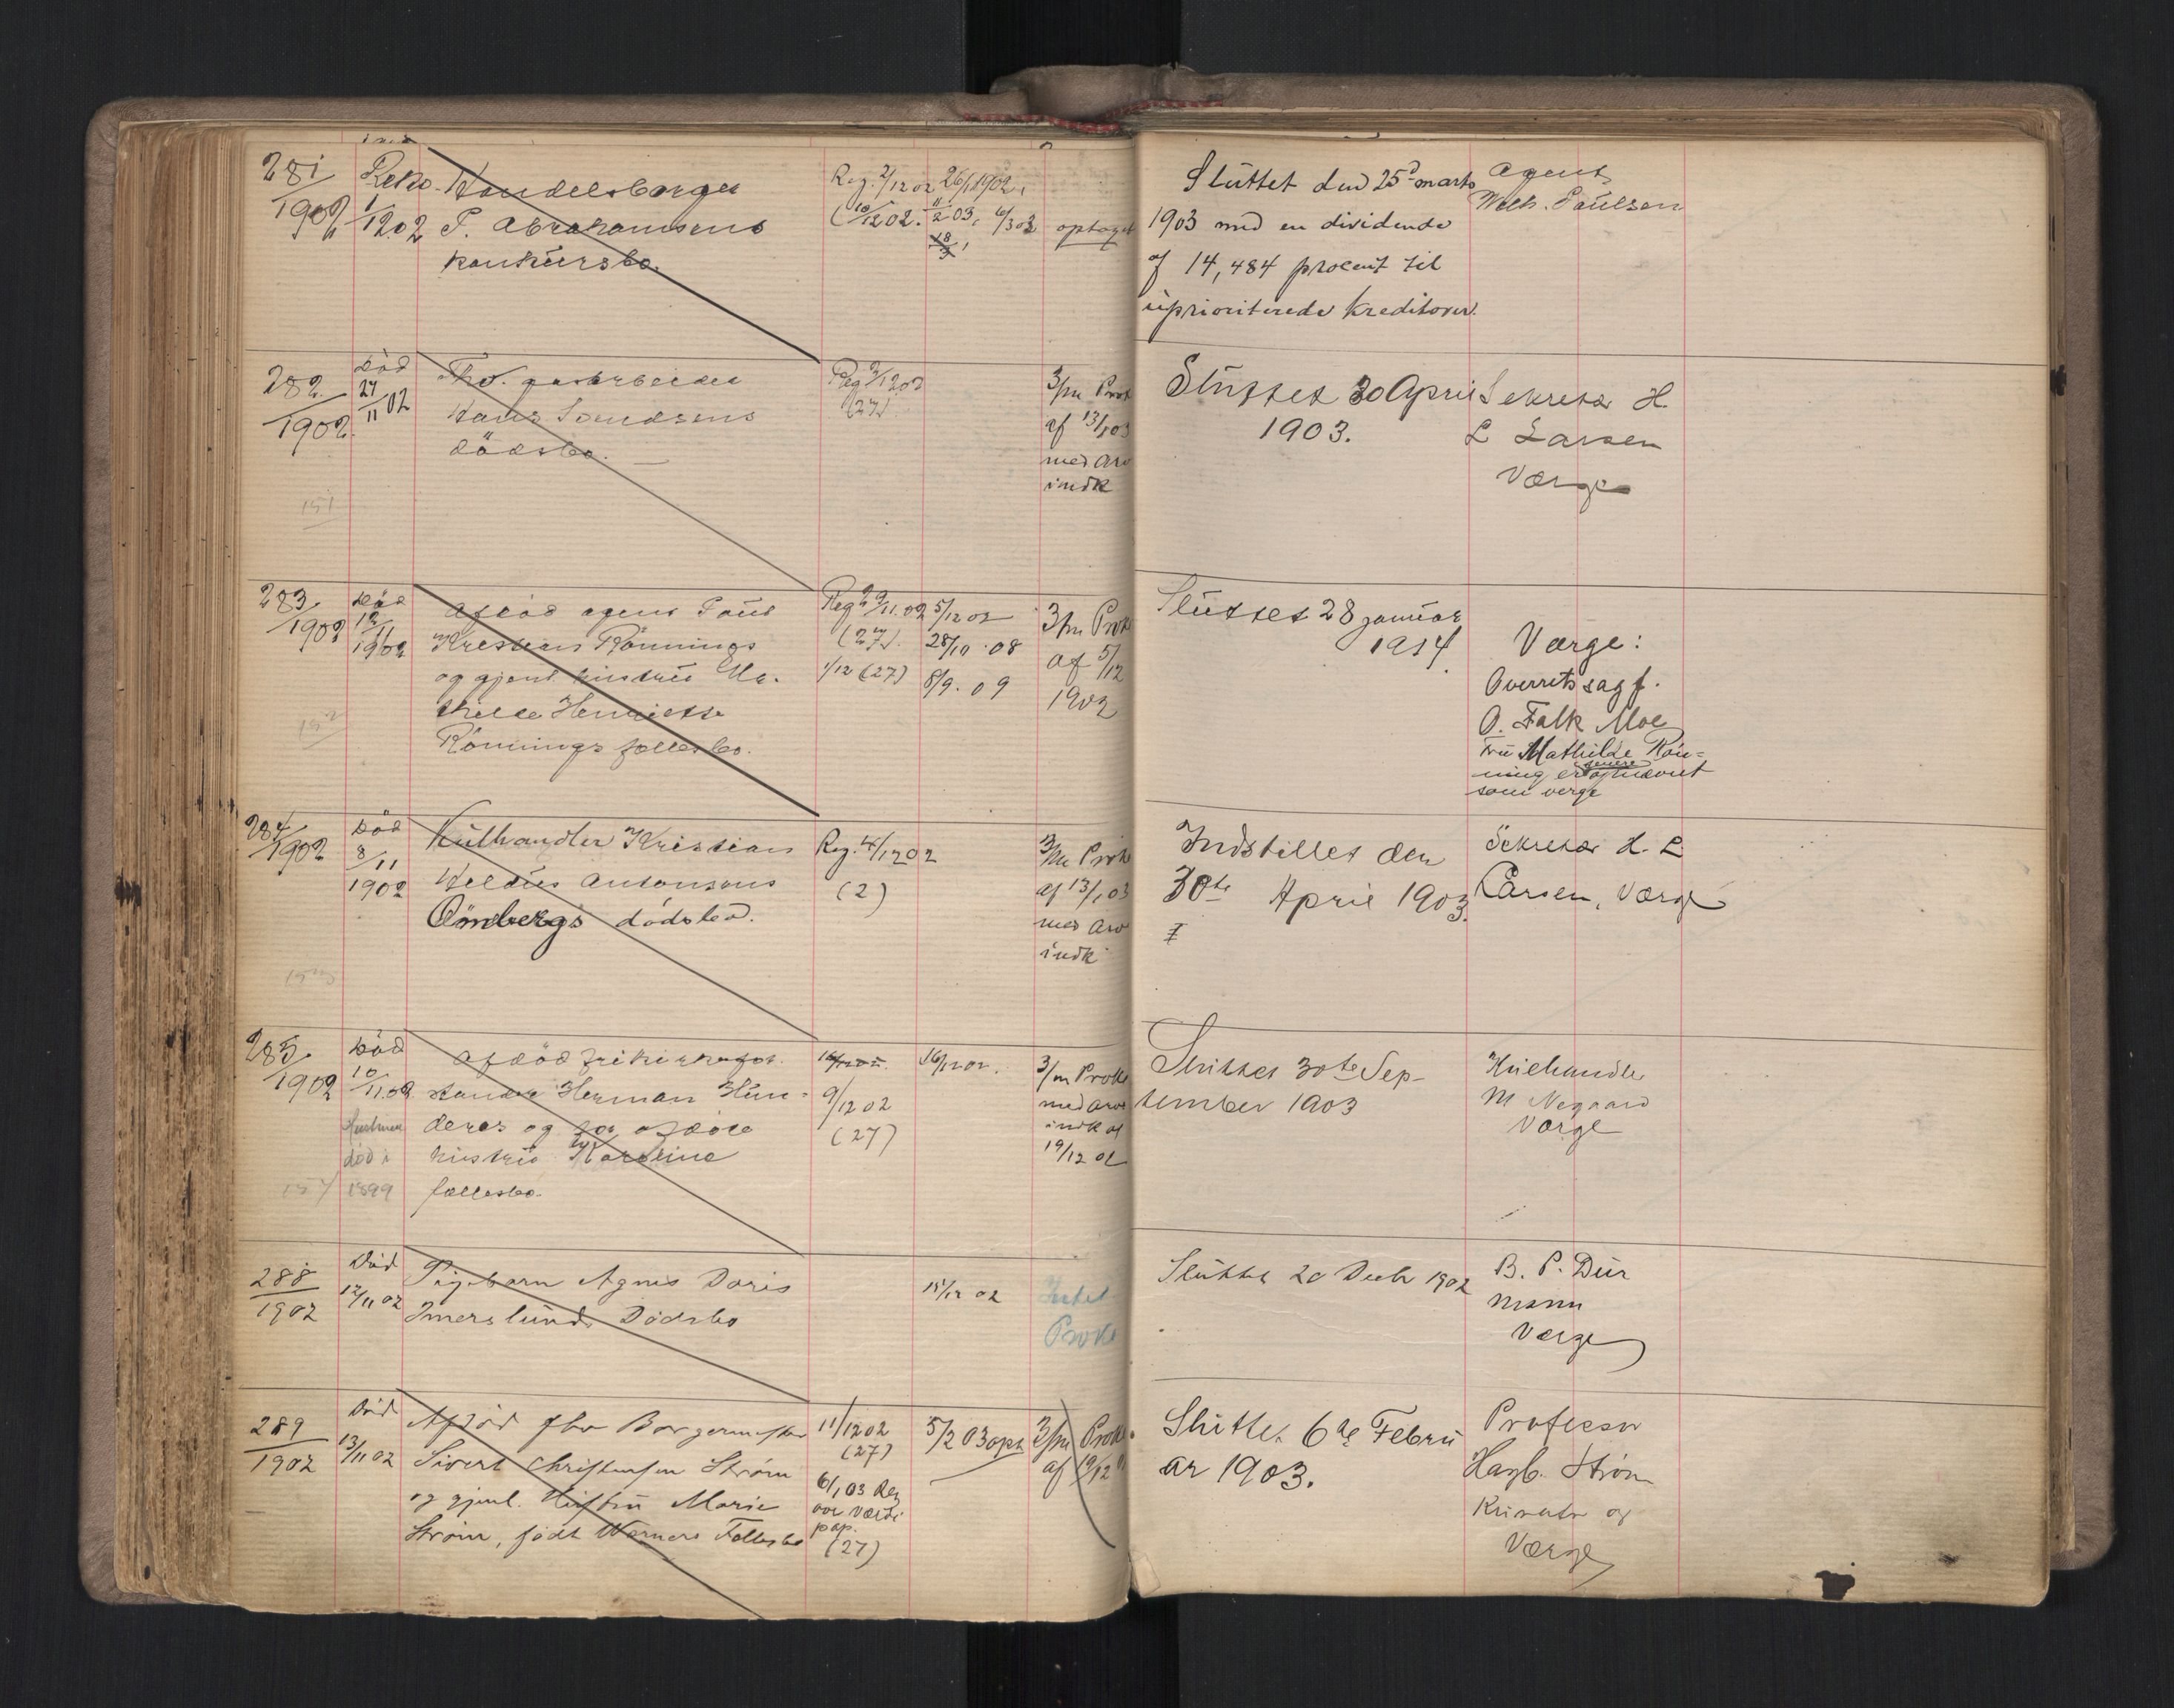 281
1902
Reko.
1/12 02
Handelsborger
P. Abrahamsens
konkursbo.
Reg. 2/12 02
(10/12 02.
26/1 1902,
11/2 03, 6/3 03
18/3,
optaget
Sluttet den 25d marts
1903 med en dividende
af 14,484 procent til
uprioriterede kreditorer.
Agent
Wilh. Paulsen
282
1902
Död
24/11 02
Hans
dödsbo.
Reg 3/12 02
(27)
3/m Prok
af 13/1 03
med Arv
indk
Sluttet 30 April
1903.
Sekretær H.
L Larsen
Værge
151
283
1902
Död
12/11
1902
Afdöd agent Paul
Kristian Rönnings
og gjenl. hustru Ma-
thilde Henriette
Rönnings fællesbo.
Reg 29/11.02
(27).
1/12 (27)
5/12 02
28/10 08
8/9. 09
3/m Prok
af 5/12
1902
Sluttet 28 januar
1914
Værge:
Overretssagf.
O. Falk Moe
Fru Mathilde Rön=
ning er senere opnævnt
som verge
152
284
1902
Död
8/11
1902
Kulhandler Kristian
Antonsens
dödsbo.
Reg. 4/12 02
(2)
3/m Prok
af 13/1 03
med Arv
indk
Indstillet den
30te April 1903.
Sekretær H. L
Larsen, Værge
153
285
1902
Död
10/11.02
Hustruen
död i
1899
Afdöd
Herman Hun-
deres og för afdöde
hustru Karoline
fællesbo.
9/12 02
(27)
16/12 02.
3/m Prok
med Arv
indk af
19/12 02
Sluttet 30te Sep-
tember 1903
Kulhandler
M Nygaard
Værge
154
288
1902
Död
12/11 02
Pigebarn Agnes Doris
Imerslunds Dödsbo
15/12 02
Intet
Prok
Sluttet 20 Decbr 1902
B. P. Dür
mann
Værge
289
1902
Död
13/11 02
Afdöd fhv Borgermester
Sivert Christensen Strøm
og gjenl. Hustru Marie
Strøm, født Werners Fællesbo
11/12 02
(27)
6/1 03 Reg
over Værdi
pap.
(27)
5/2 03 opt
3/m Prok.
af
Sluttet 6te Febru
ar 1903.
Professor
Hagb. Strøm
Kurator og
Værge